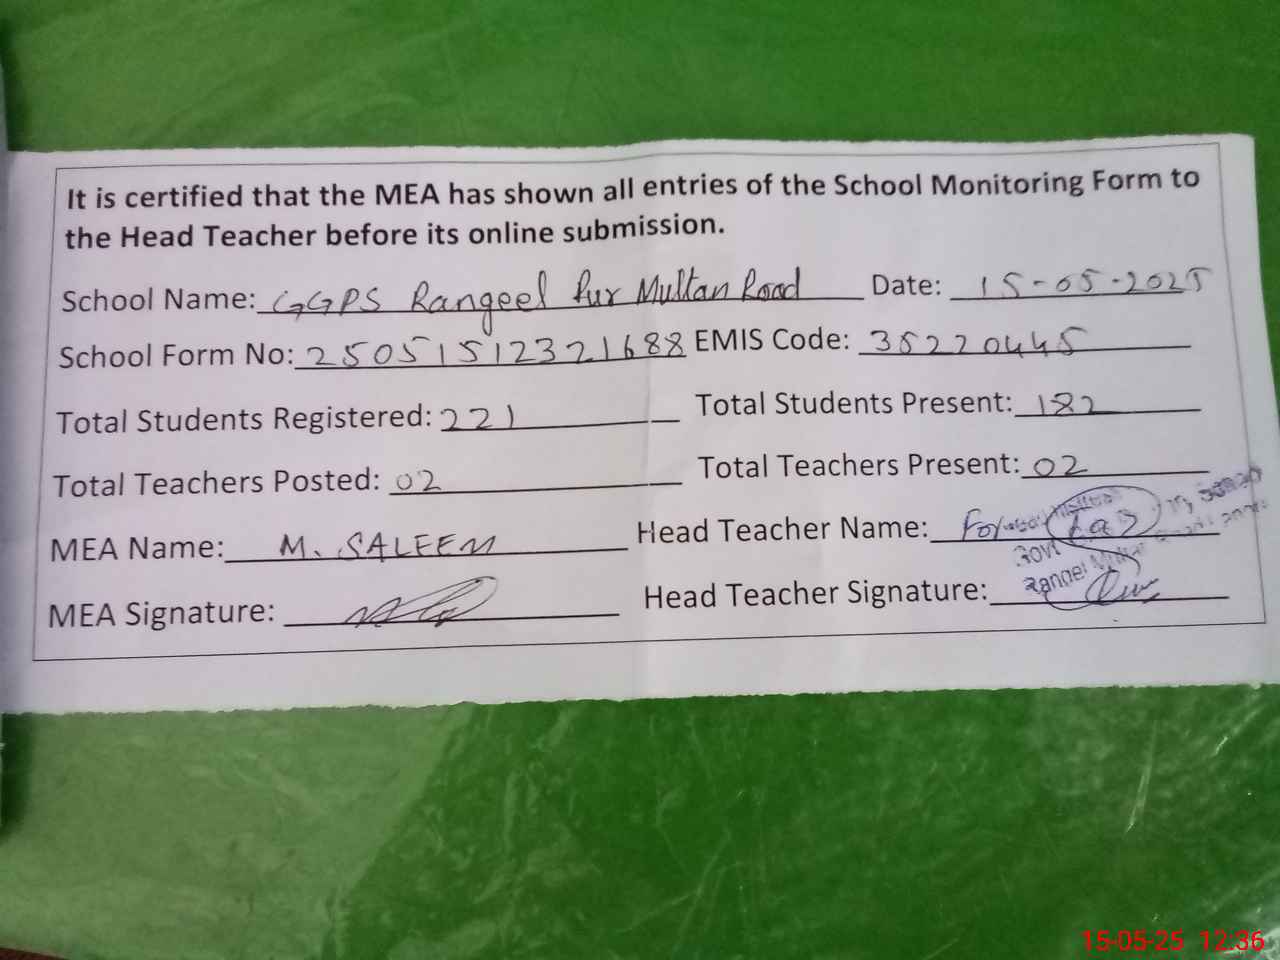 It is certified that the MEA has shown all entries of the School Monitoring Form to
the Head Teacher before its online submission.
School Name: GGPS Rangeel Pur Multan Road Date: 15-05-2025
School Form No: 25051512321688 EMIS Code: 35220445
Total Students Registered: 221 Total Students Present: 182
Total Teachers Posted: 02 Total Teachers Present: 02
MEA Name: M. SALEEM Head Teacher Name:
MEA Signature: Head Teacher Signature:
15-05-25 12:36